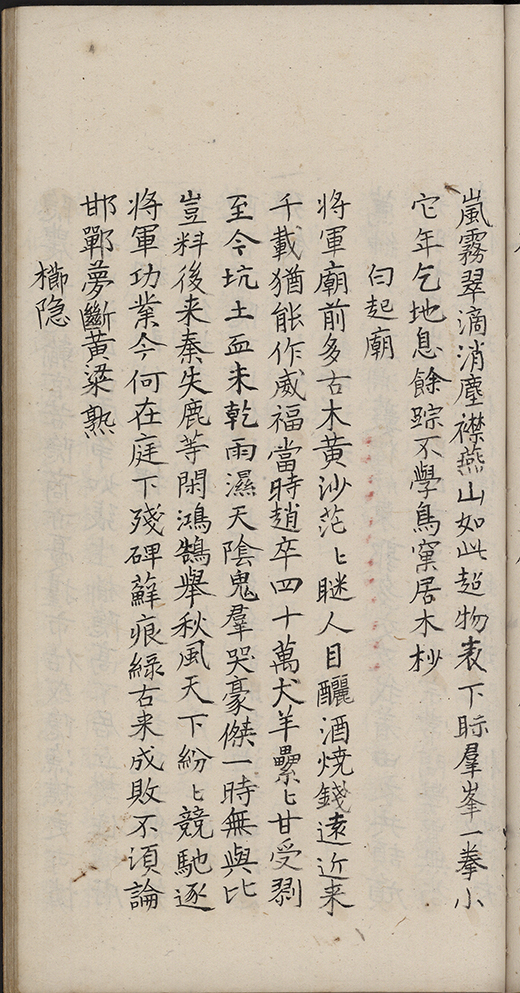 嵐霧翠滴消塵襟燕山如此超物表下眎羣峯一拳小
它年乞地息餘踪不學鳥窠居木杪
白起廟
將軍廟前多古木黃沙茫〻瞇人目釃酒燒錢遠近来
千載猶能作威福當時趙卒四十萬犬羊纍〻甘受剹
至今坑土血未乾雨濕天陰鬼羣哭豪傑一時無與比
豈料後来秦失鹿等閑鴻鵠舉秋風天下紛〻競馳逐
將軍功業今何在庭下殘碑蘚痕綠古来成敗不須論
邯鄲夢斷黃粱熟
櫛隐